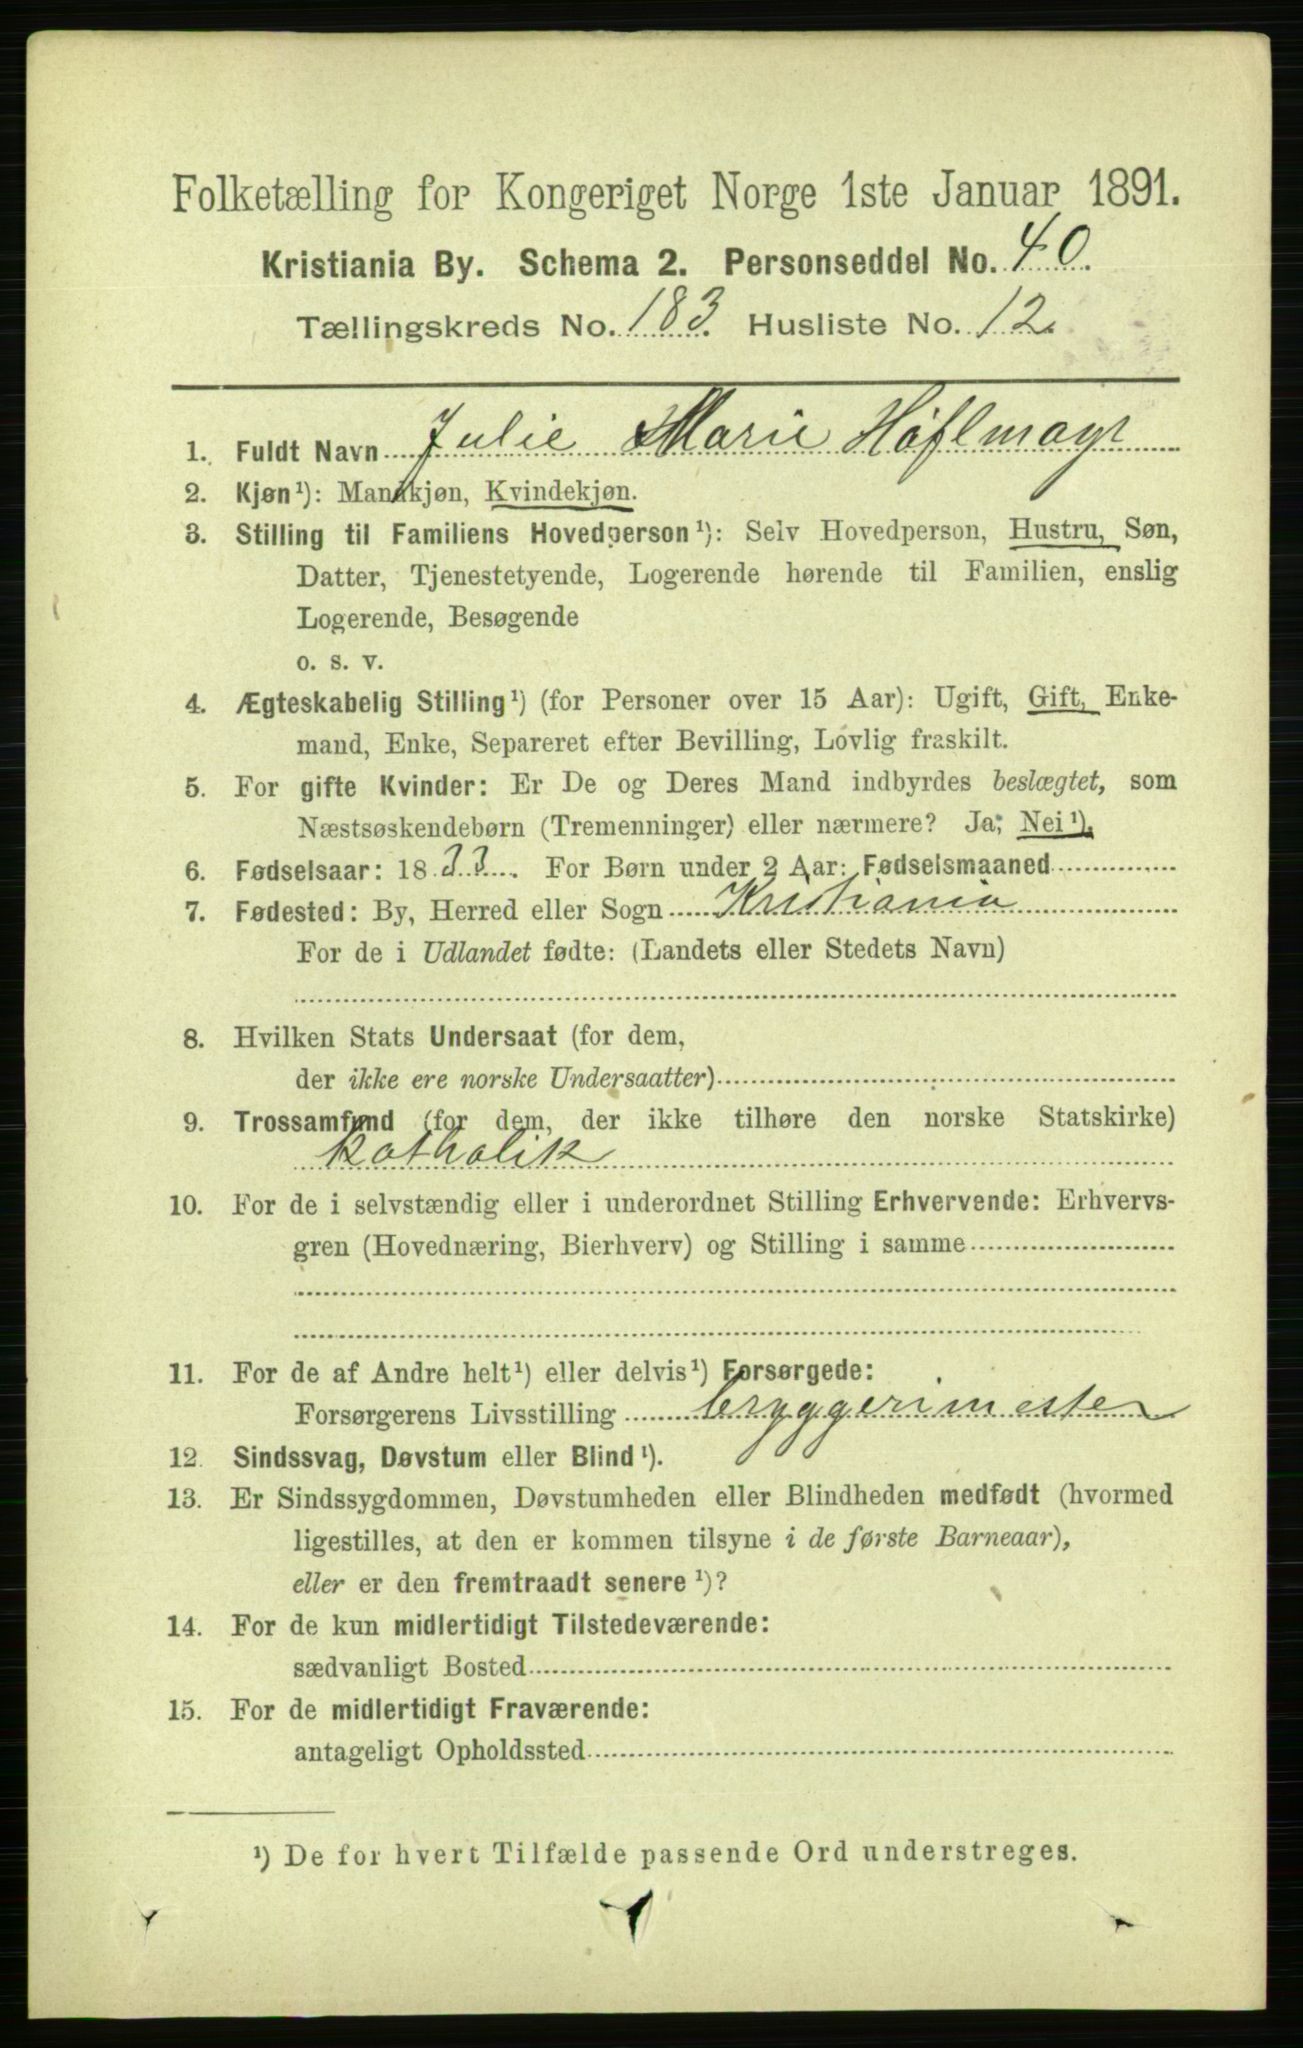 Folketælling for Kongeriget Norge 1ste Januar 1891.
Kristiania By. Schema 2. Personseddel No. 40.
Tællingskreds No. 183. Husliste No. 12.
1. Fuldt Navn Julie Marie Høflmayr
2. Kjøn¹): Mandkjøn, Kvindekjøn.
3. Stilling til Familiens Hovedperson¹): Selv Hovedperson, Hustru, Søn,
Datter, Tjenestetyende, Logerende hørende til Familien, enslig
Logerende, Besøgende
o. s. v.
4. Ægteskabelig Stilling¹) (for Personer over 15 Aar): Ugift, Gift, Enke-
mand, Enke, Separeret efter Bevilling, Lovlig fraskilt.
5. For gifte Kvinder: Er De og Deres Mand indbyrdes beslægtet, som
Næstsøskendebørn (Tremenninger) eller nærmere? Ja, Nei¹).
6. Fødselsaar: 1833. For Børn under 2 Aar: Fødselsmaaned
7. Fødested: By, Herred eller Sogn Kristiania
For de i Udlandet fødte: (Landets eller Stedets Navn)
8. Hvilken Stats Undersaat (for dem,
der ikke ere norske Undersaatter)
9. Trossamfund (for dem, der ikke tilhøre den norske Statskirke)
katholik
10. For de i selvstændig eller i underordnet Stilling Erhvervende: Erhvervs-
gren (Hovednæring, Bierhverv) og Stilling i samme
11. For de af Andre helt¹) eller delvis¹) Forsørgede:
Forsørgerens Livsstilling bryggerimester
12. Sindssvag, Døvstum eller Blind¹).
13. Er Sindssygdommen, Døvstumheden eller Blindheden medfødt (hvormed
ligestilles, at den er kommen tilsyne i de første Barneaar),
eller er den fremtraadt senere¹)?
14. For de kun midlertidigt Tilstedeværende:
sædvanligt Bosted
15. For de midlertidigt Fraværende:
antageligt Opholdssted
¹) De for hvert Tilfælde passende Ord understreges.